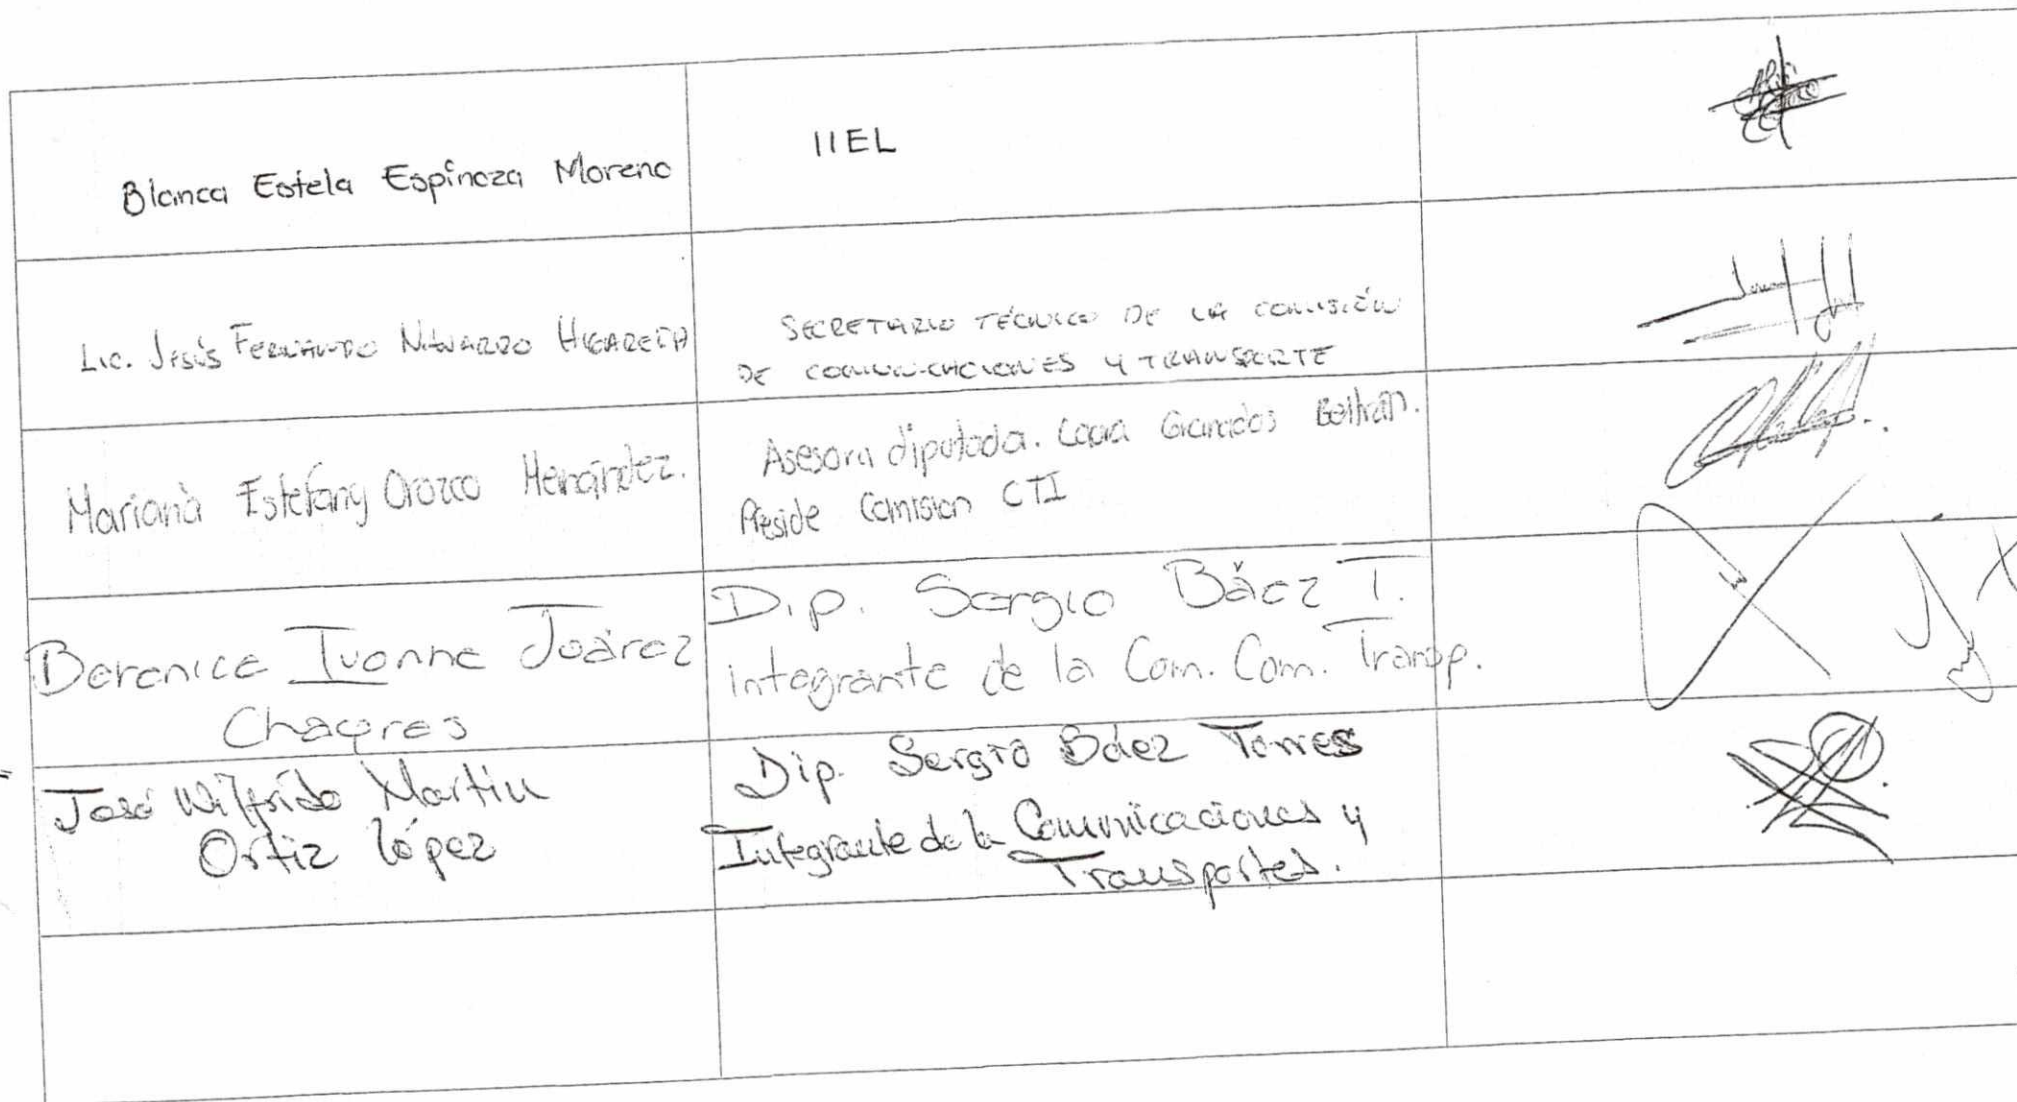 Blanca Estela Espinoza Moreno
IIEL
Lic. Jesús Fernando Navarro Higareda
SECRETARIO TÉCNICO DE LA COMISIÓN
DE COMUNICACIONES Y TRANSPORTE
Mariana Estefany Orozco Hernández.
Asesora diputada. Granados Beltrán.
Preside Comision CTI
Berenice Ivonne Juárez
Chaqres
Dip. Sergio Báez T.
integrante de la Com. Com. Transp.
José Wilfrido Martin
Ortiz López
Dip. Sergio Báez Torres
Integrante de la Comunicaciones y
Transportes.